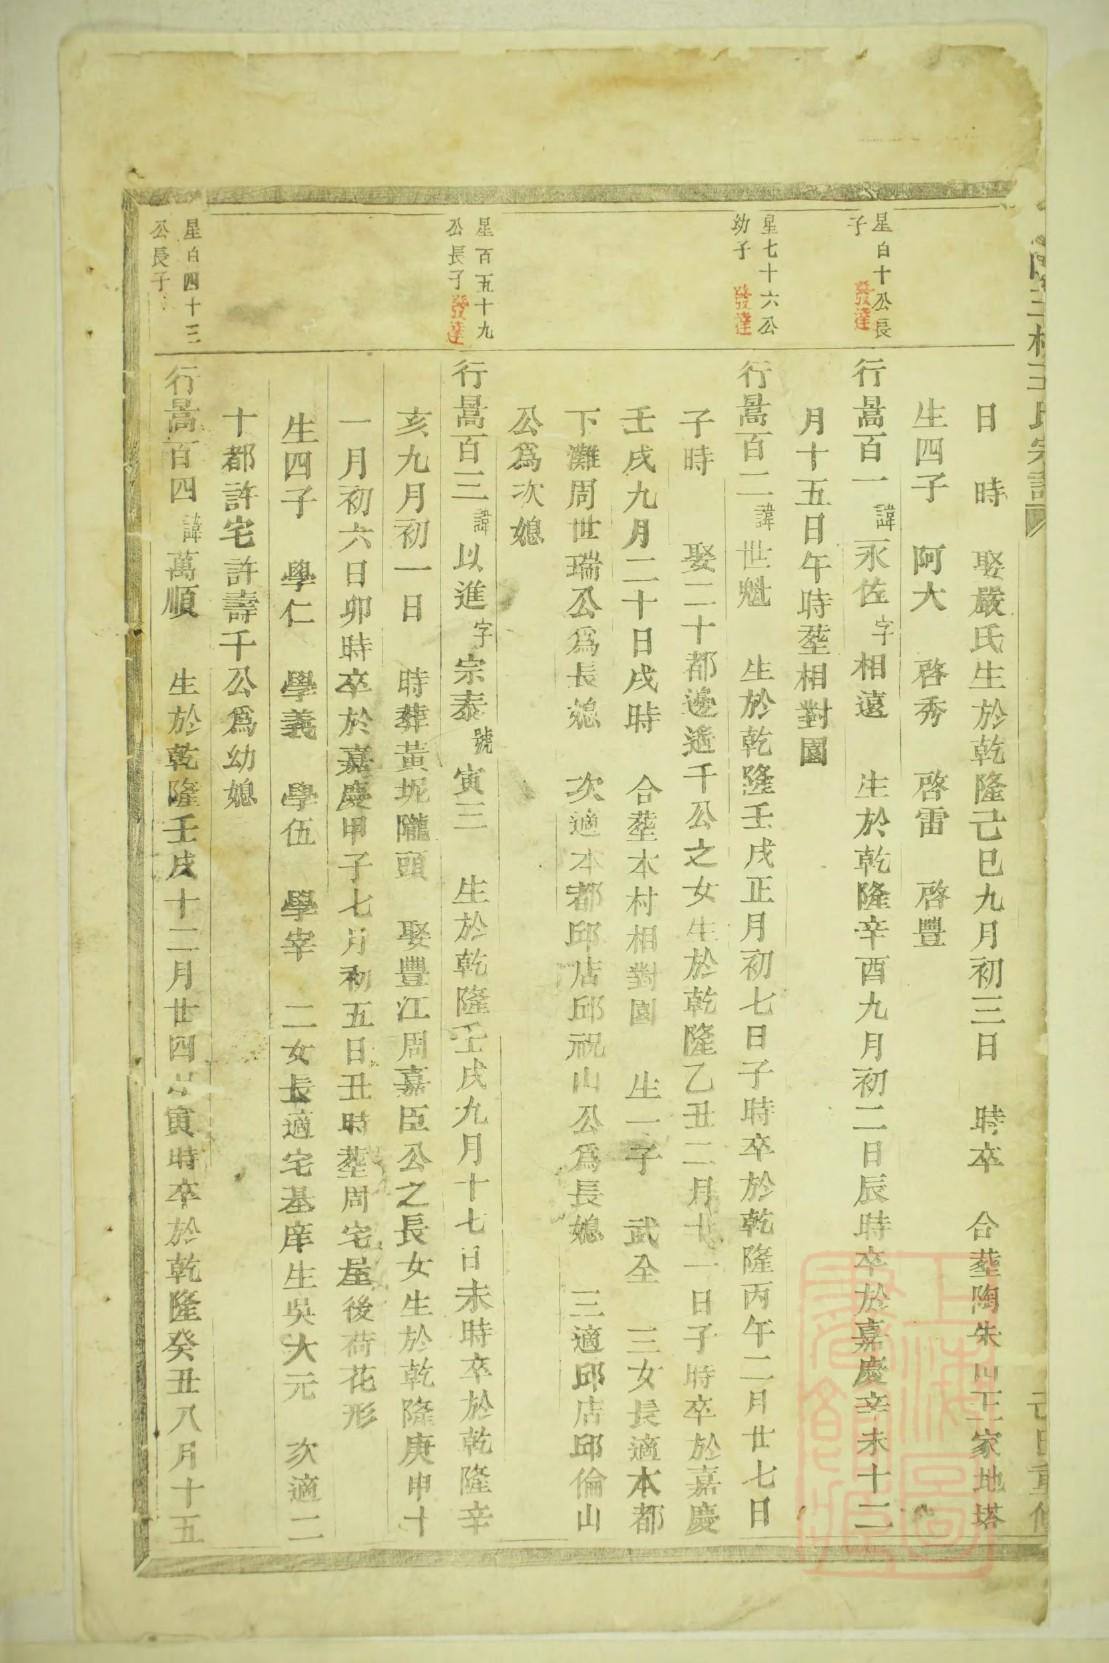 日　時　娶嚴氏生於乾隆己巳九月初三日　時卒　合塟陶朱山王家地塔
生四子　阿大　啓秀　啓雷　啓豐
星百十公長
子　發達
行暠百一諱永佐字相遠　生於乾隆辛酉九月初二日辰時卒於嘉慶辛未十二
月十五日午時塟相對園
星七十六公
幼子　發達
行暠百二諱世魁　生於乾隆壬戌正月初七日子時卒於乾隆丙午二月廿七日
子時　娶二十都邊遙千公之女生於乾隆乙丑二月十一日子時卒於嘉慶
壬戌九月二十日戌時　合塟本村相對園　生一子　武全　三女長適本都
下灘周世瑞公爲長媳　次適本都邱店邱祝山公爲長媳　三適邱店邱倫山
公爲次媳
星百五十九
公長子　發達
行暠百三諱以進字宗泰號寅三　生於乾隆壬戌九月十七日未時卒於乾隆辛
亥九月初一日　時葬黃坭隴頭　娶豐江周嘉臣公之長女生於乾隆庚申十
一月初六日卯時卒於嘉慶甲子七月初五日丑時塟周宅屋後荷花形
生四子　學仁　學義　學伍　學宰　二女長適宅基庠生吳大元　次適二
十都許宅許壽千公爲幼媳
星百四十三
公長子
行暠百四諱萬順　生於乾隆壬戌十二月廿四日寅時卒於乾隆癸丑八月十五
王氏宗譜
上海圖書館藏